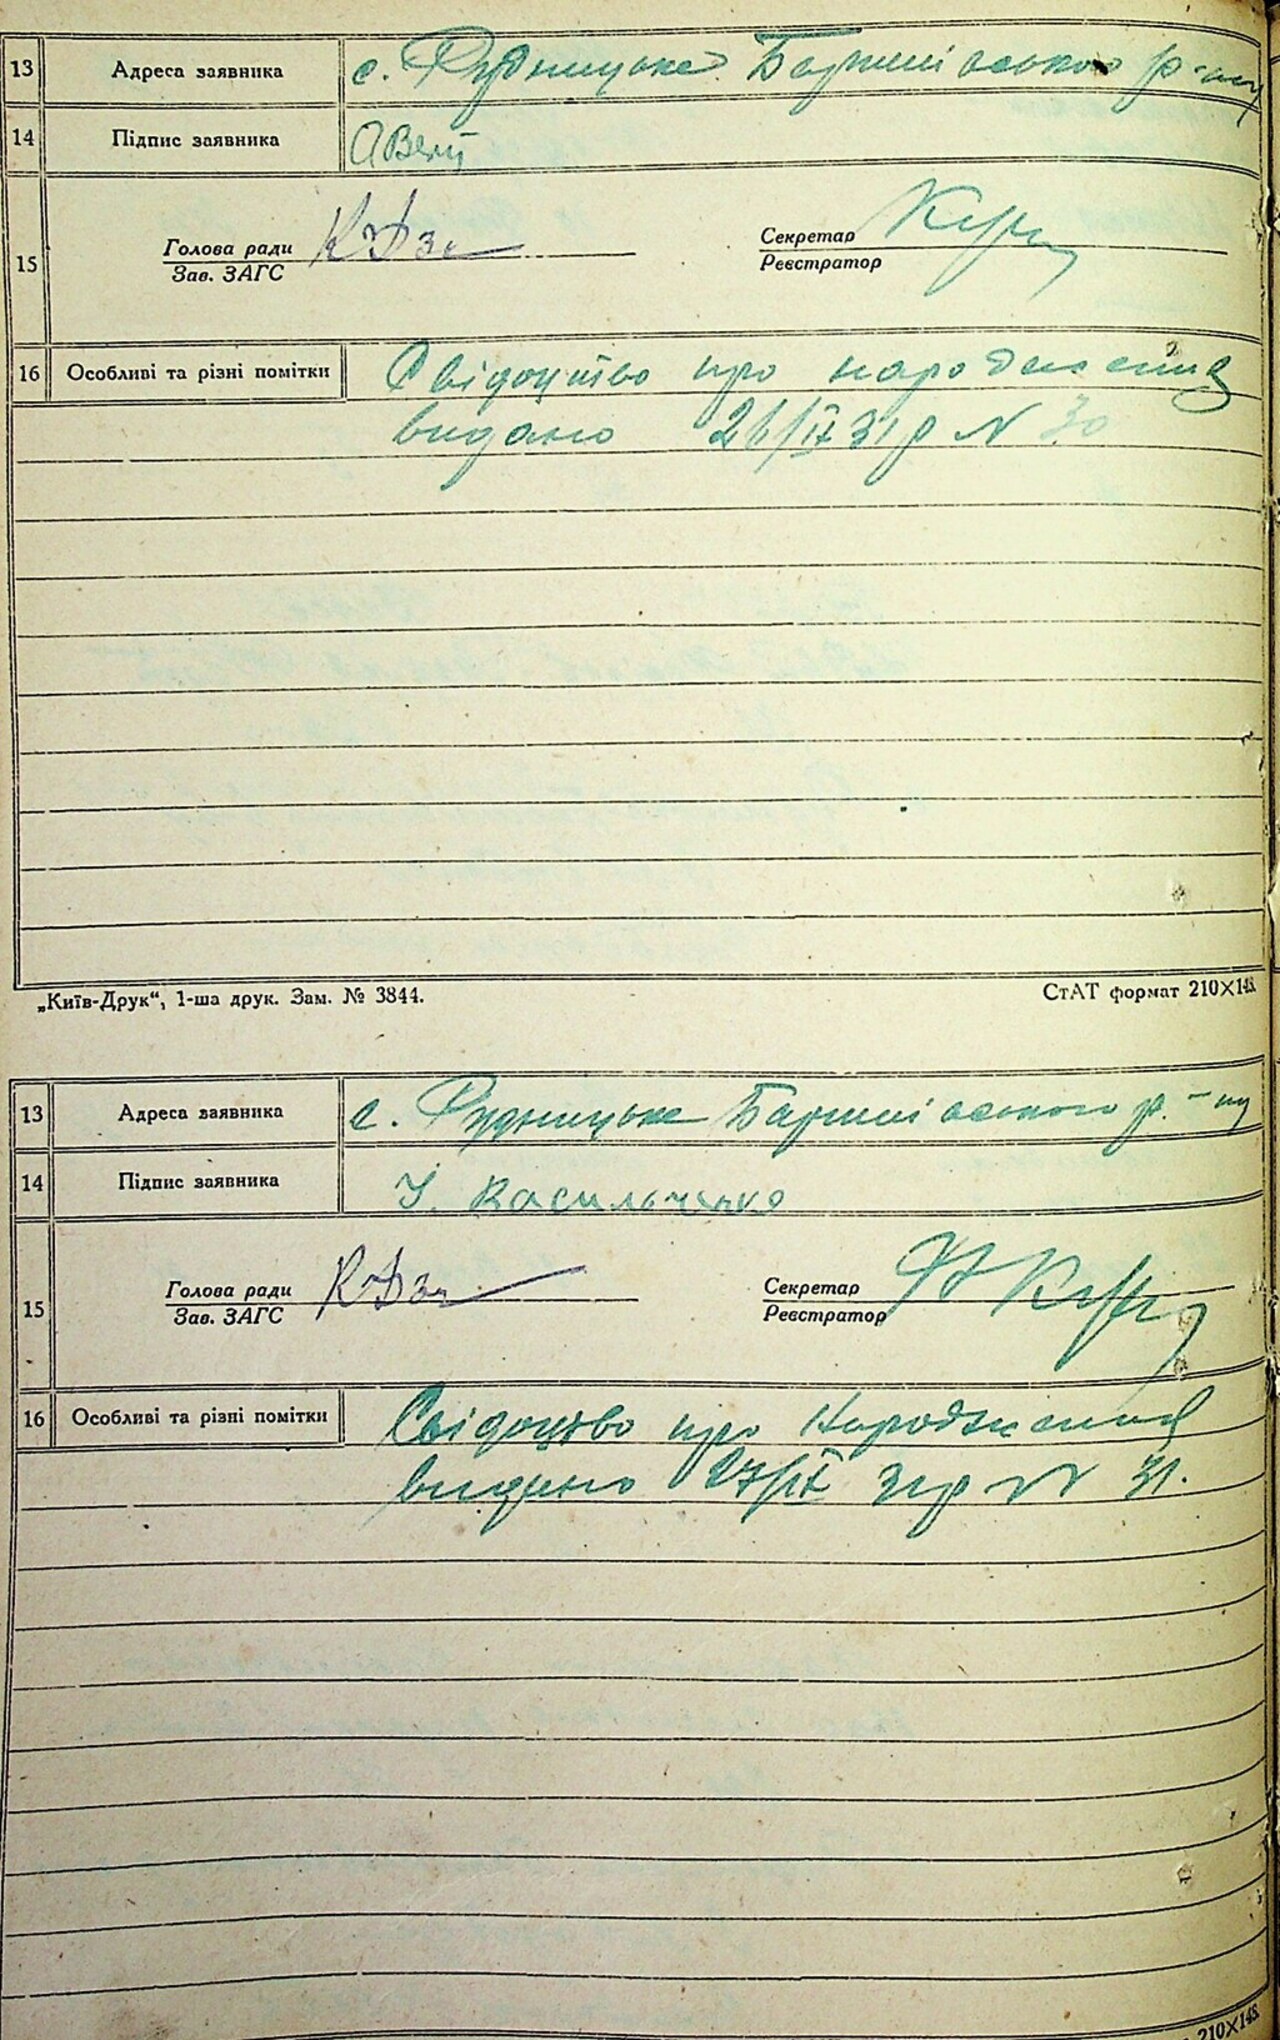 13 Адреса заявника с. Рудницьке Баришівського р-ну
14 Підпис заявника
15 Голова ради Секретар
Зав. ЗАГС Реєстратор
16 Особливі та різні помітки Свідоцтво про народження
видано 26/IX 31р N 30
„Київ-Друк“, 1-ша друк. Зам. № 3844. СтАТ формат 210×148.
13 Адреса заявника с. Рудницьке Баришівського р.-ну
14 Підпис заявника У. Васильченко
15 Голова ради Секретар
Зав. ЗАГС Реєстратор
16 Особливі та різні помітки Свідоцтво про народження
видано 27/IX 31р N 31.
210×148.